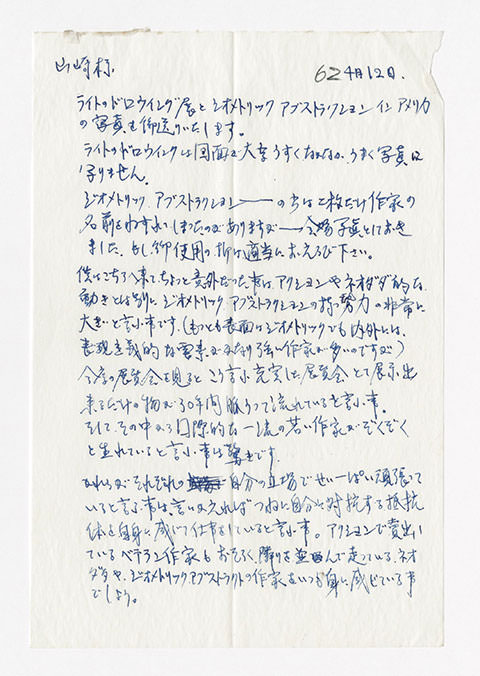 山崎様
62 4月12日.
ライトのドロウイング展とジオメトリック アブストラクション イン アメリカ
の写真を御送りいたします。
ライトのドロウイングは図面が大変うすくなかなか、うまく写真に
写りません。
ジオメトリック アブストラクション── の方は二枚だけ作家の
名前をわすれてしまったのがありますが── 会場写真とっておき
ました。もし御使用の折は適当におえらび下さい。
僕はこちらへ来てちょっと意外だった事は、アクションやネオダダ的な
動きとは別に ジオメトリック アブストラクションの持つ勢力の非常に
大きいと言う事です。(もっとも表面はジオメトリックでも内外には、
表現主義的な要素がかなり強い作家が多いのですが)
今度の展覧会を見ると こう言う充実した展覧会として展示出
来るだけの物が30年間脈うって流れていると言う事。
そして、その中から国際的な一流の若い作家がぞくぞく
と生れていると言う事は驚きです。
それぞれの 自分の立場でせいいっぱい頑張って
いると言う事は、言いかえればつねに自分に対抗する抵抗
体を自身に感じて仕事をしていると言う事。アクションで売出し
ているベテラン作家もおそらく、隣りを並んで走っている、ネオ
ダダや、ジオメトリックアブストラクトの作家をいつも身に感じている事
でしょう。